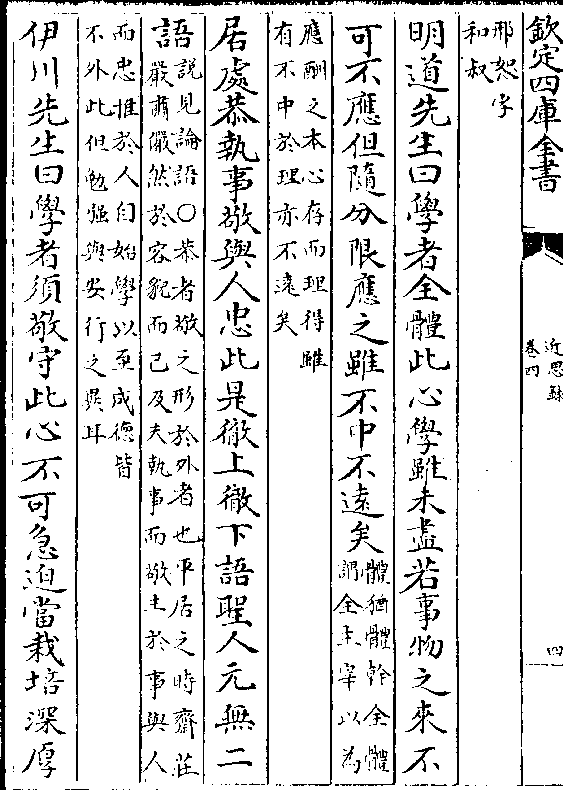 欽定四庫全書
近思錄
卷四
四
邢恕字
和叔
明道先生曰學者全體此心學雖未盡若事物之來不
可不應但隨分限應之雖不中不遠矣
體猶體幹全體
謂全主宰以為
應酬之本心存而理得雖
有不中於理亦不遠矣
居處恭執事敬與人忠此是徹上徹下語聖人元無二
語
說見論語○恭者敬之形於外者也平居之時齋莊
嚴肅儼然於容貌而已及夫執事而敬主於事與人
而忠推於人自始學以至成德皆
不外此但勉強與安行之異耳
伊川先生曰學者須敬守此心不可急迫當栽培深厚